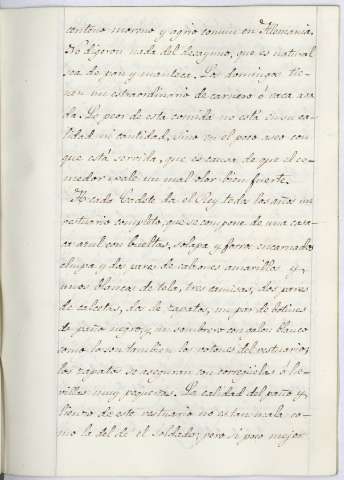 centeno moreno y agrio comun en Alemania.
No dijeron nada del desayuno, que es natural
sea de pan y manteca. Los domingos tie-
nen un extraordinario de carnero ó vaca asa
da. Lo peor de esta comida no está en su ca-
lidad ni cantidad, sino en el poco aseo con
que está servida, que es causa de que el co-
medor exale un mal olor bien fuerte.
A cada Cadete da el Rey todos los años un
vestuario completo, que se compone de una casa-
ca azul con bueltas, solapa y forro encarnado,
chupa y dos pares de calzones amarillos y
unos blancos de tela, tres camisas, dos pares
de calcetas, dos de zapatos, un par de botines
de paño negro, y un sombrero con galon blanco
como lo son tambien los botones del vestuario;
los zapatos se aseguran con correguelas ó he-
villas muy pequeñas. La calidad del paño y
lienzo de este vestuario no es tan mala co-
mo la del de el soldado; pero si poco mejor